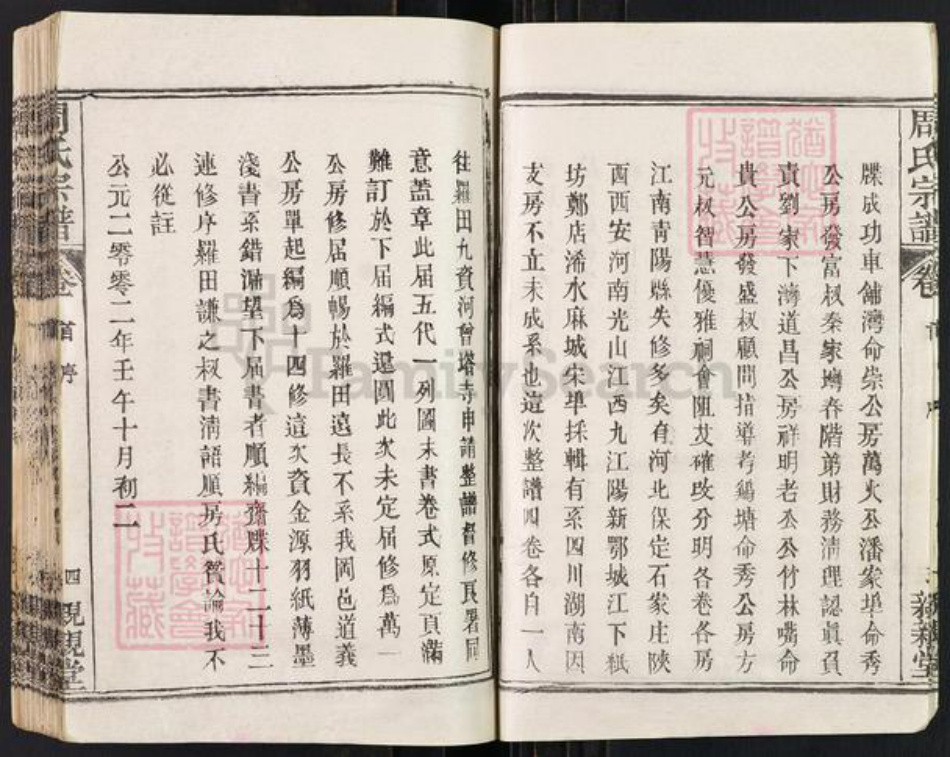 牒成功車舖灣命崇公房萬火公潘家埠命秀
公房發富叔秦家塆春階弟財務清理認眞負
責劉家下灣道昌公房祥明老公公竹林嘴命
貴公房發盛叔顧問指導考鷄塘命秀公房方
元叔智慧優雅祠會阻艾確改分明各卷各房
江南青陽縣失修多矣有河北保定石家庄陝
西西安河南光山江西九江陽新鄂城江下
坊鄭店浠水麻城宋埠採輯有系四川湖南因
支房不立未成系也這次整譜四卷各自一人
往羅田九資河曾塔寺申請整譜督修良署同
意蓋章此届五代一列圖末書卷式原定頁滿
難訂於下届編式還圓此次未定届修爲萬一
公房修届順暢於羅田遠長不系我岡邑道義
公房單起編爲十四修這次資金源羽紙薄墨
淺書系錯漏望下届書者順編齋牒十二十三
連修序羅田謙之叔書清語順房氏貧論我不
必從註
公元二零零二年壬午十月初二
周氏宗譜
卷
首
序
四
親親堂
周氏宗譜
卷
FamilySearch